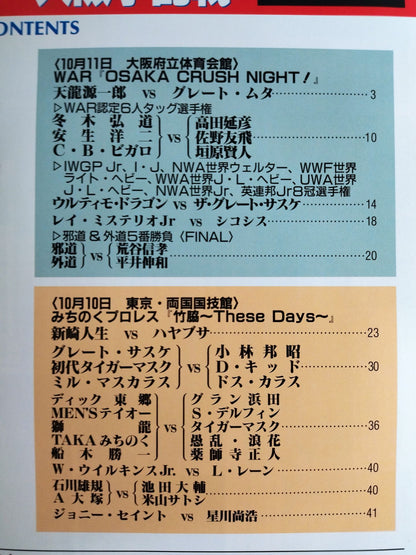 ONTENTS
〈10月11日 大阪府立体育会館〉
WAR『OSAKA CRUSH NIGHT!』
天龍源一郎 vs グレート・ムタ 3
▷WAR認定6人タッグ選手権
冬木弘道
安生洋二
C・B・ビガロ
vs
高田延彦
佐野友飛
垣原賢人
10
▷IWGP Jr、I・J、NWA世界ウェルター、WWF世界
ライト・ヘビー、WWA世界J・L・ヘビー、UWA世界
J・L・ヘビー、NWA世界Jr、英連邦Jr8冠選手権
ウルティモ・ドラゴン vs ザ・グレート・サスケ 14
レイ・ミステリオJr vs シコシス 18
▷邪道&外道5番勝負〈FINAL〉
邪道
外道
vs
荒谷信孝
平井伸和
20
〈10月10日 東京・両国国技館〉
みちのくプロレス『竹脇〜These Days〜』
新崎人生 vs ハヤブサ 23
グレート・サスケ
初代タイガーマスク
ミル・マスカラス
vs
小林邦昭
D・キッド
ドス・カラス
30
ディック東郷
MEN'Sテイオー
獅龍
TAKAみちのく
船木勝一
vs
グラン浜田
S・デルフィン
タイガーマスク
愚乱・浪花
薬師寺正人
36
W・ウイルキンスJr. vs L・レーン 40
石川雄規
A大塚
vs
池田大輔
米山サトシ
40
ジョニー・セイント vs 星川尚浩 41